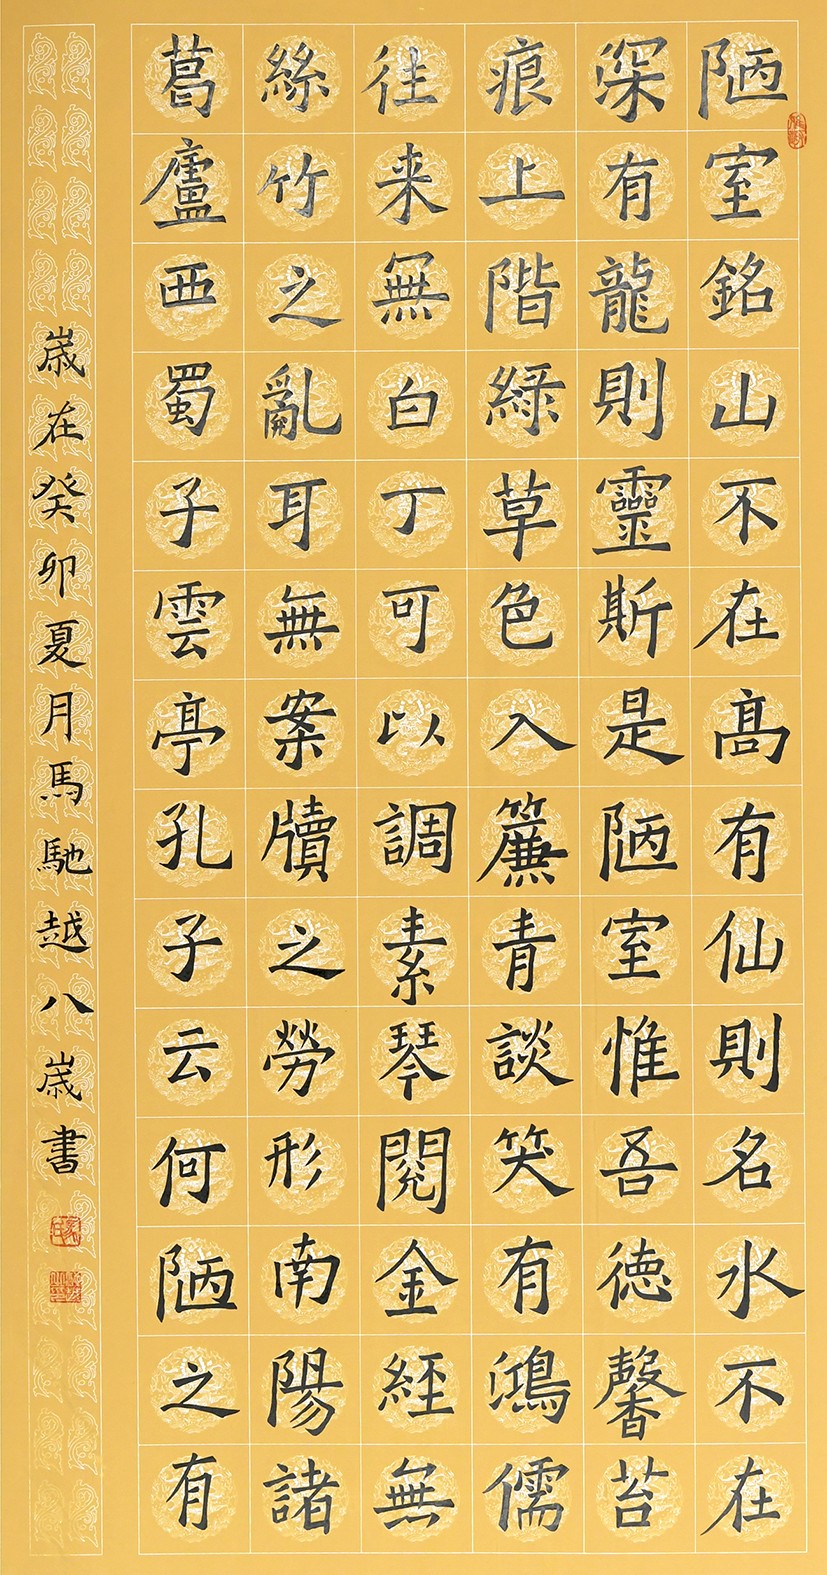 陋室銘山不在高有仙則名水不在
深有龍則靈斯是陋室惟吾德馨苔
痕上階綠草色入簾青談笑有鴻儒
往来無白丁可以調素琴閱金經無
絲竹之亂耳無案牘之勞形南陽諸
葛廬西蜀子雲亭孔子云何陋之有
歲在癸卯夏月馬馳越八歲書